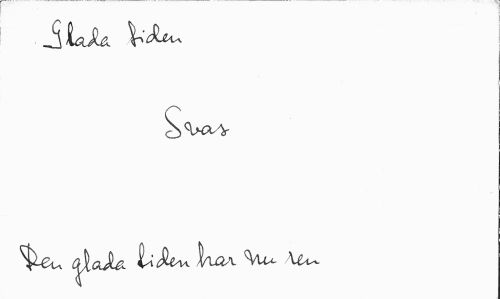 Glada tiden
Svas
Den glada tiden har nu ren